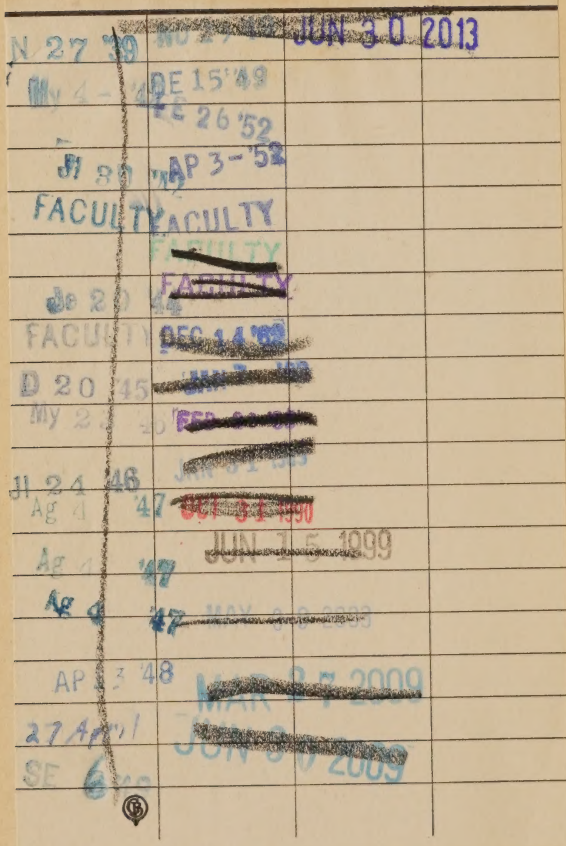 N 27 '39
My 4 - '4
Jl 30 '42
FACULTY
44
FACULTY
D 20 '45
My 2
Jl 24 46
Ag 4 '47
Ag 4 '47
Ag 4 '47
AP 3 '48
27 April
SE 6
DE 15 '49
FE 26 '52
AP 3 - '52
FACULTY
FACULTY
FACULTY
DEC 14
JAN
FEB
JAN 31
OCT 31 1990
JUN 15 1999
MAY
MAR 27 2009
JUN 30 2009
JUN 30 2013